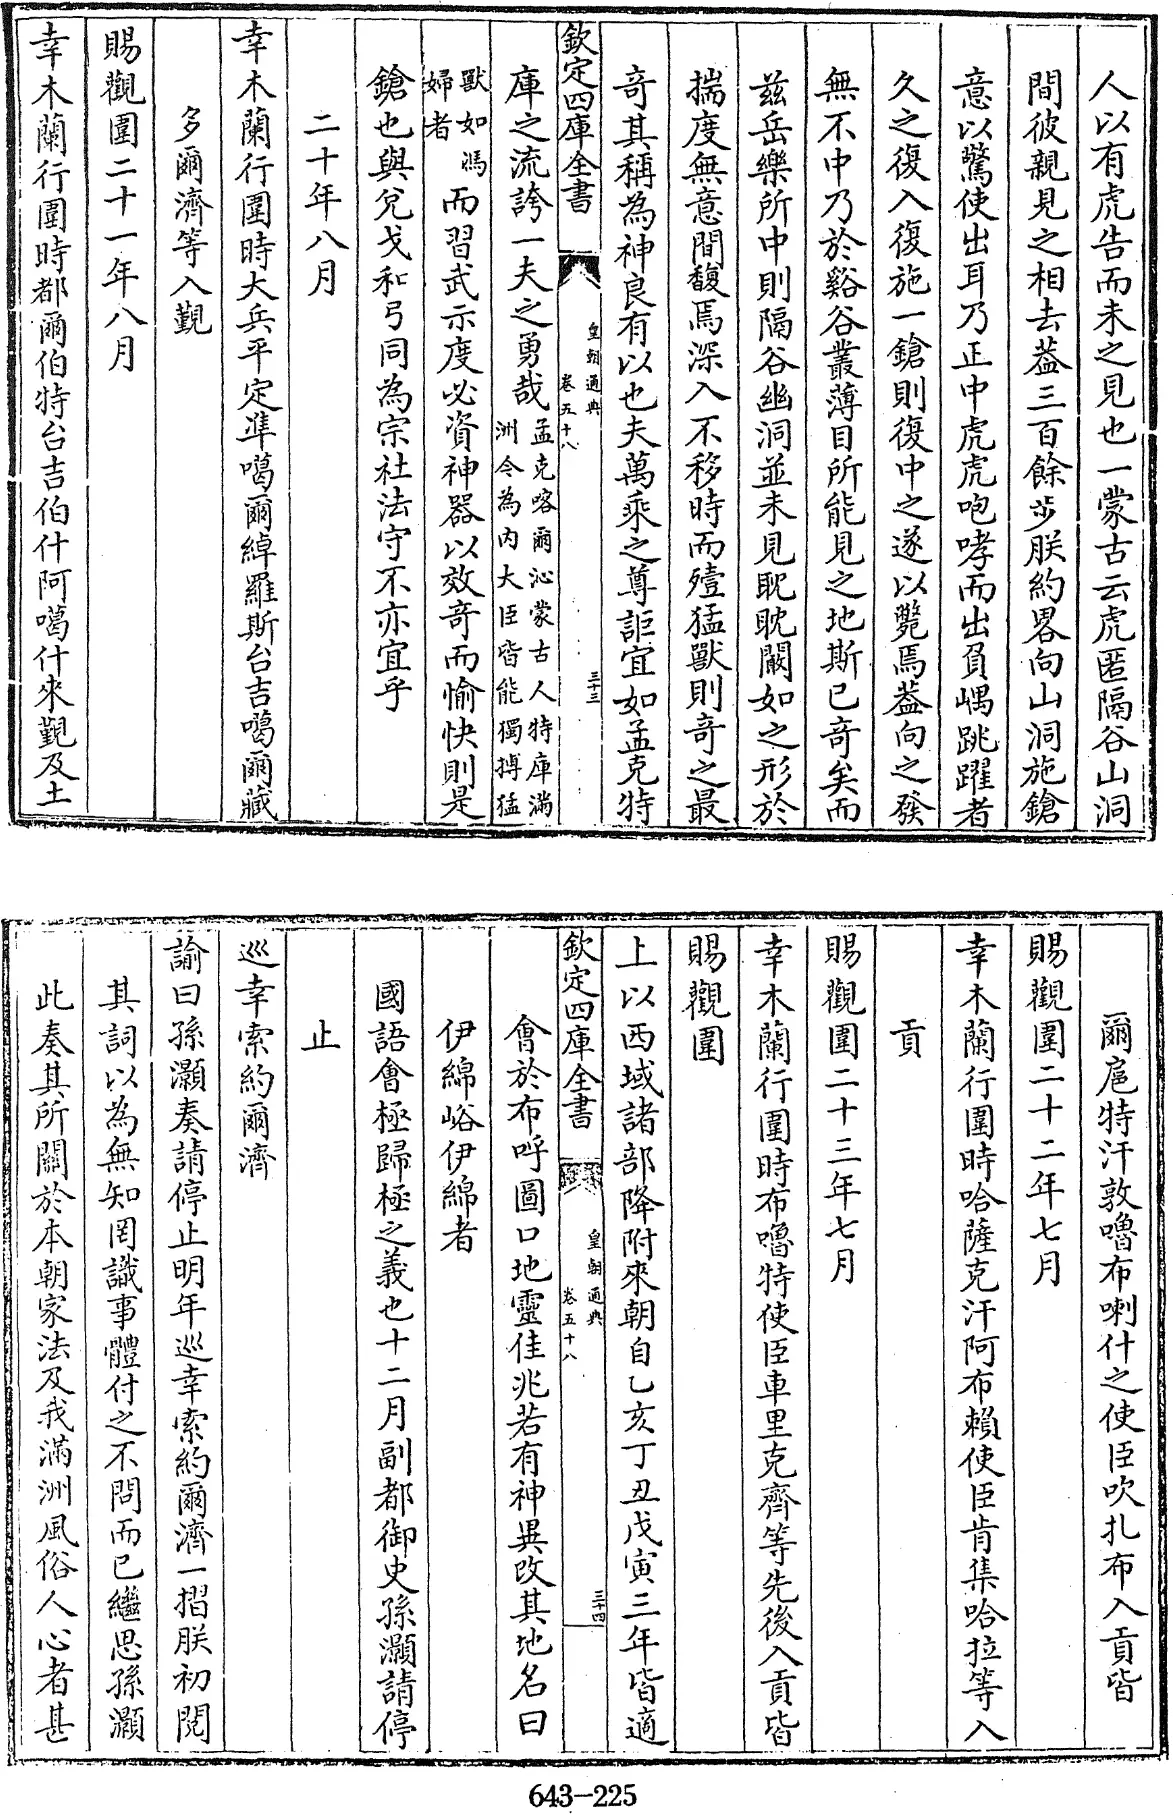 人以有虎告而未之見也一蒙古云虎匿隔谷山洞
間彼親見之相去葢三百餘步朕約畧向山洞施鎗
意以驚使出耳乃正中虎虎咆哮而出負嵎跳躍者
久之復入復施一鎗則復中之遂以斃焉葢向之發
無不中乃於谿谷叢薄目所能見之地斯已奇矣而
兹岳樂所中則隔谷幽洞並未見眈眈闞如之形於
揣度無意間馥焉深入不移時而殪猛獸則奇之最
奇其稱為神良有以也夫萬乘之尊詎宜如孟克特
欽定四庫全書
皇朝通典
卷五十八
三十三
庫之流誇一夫之勇哉孟克喀爾沁蒙古人特庫滿
洲令為内大臣皆能獨搏猛
獸如馮
婦者
而習武示度必資神器以效奇而愉快則是
鎗也與兌戈和弓同為宗社法守不亦宜乎
二十年八月
幸木蘭行圍時大兵平定準噶爾綽羅斯台吉噶爾藏
多爾濟等入觐
賜觀圍二十一年八月
幸木蘭行圍時都爾伯特台吉伯什阿噶什來觐及土
爾扈特汗敦嚕布喇什之使臣吹扎布入貢皆
賜觀圍二十二年七月
幸木蘭行圍時哈薩克汗阿布賴使臣肯集哈拉等入
貢
賜觀圍二十三年七月
幸木蘭行圍時布嚕特使臣車里克齊等先後入貢皆
賜觀圍
上以西域諸部降附來朝自乙亥丁丑戊寅三年皆適
欽定四庫全書
皇朝通典
卷五十八
三十四
會於布呼圖口地靈佳兆若有神異改其地名曰
伊綿峪伊綿者
國語會極歸極之義也十二月副都御史孫灝請停
止
巡幸索約爾濟
諭曰孫灝奏請停止明年巡幸索約爾濟一摺朕初閱
其詞以為無知罔識事體付之不問而已繼思孫灝
此奏其所關於本朝家法及我滿洲風俗人心者甚
643-225